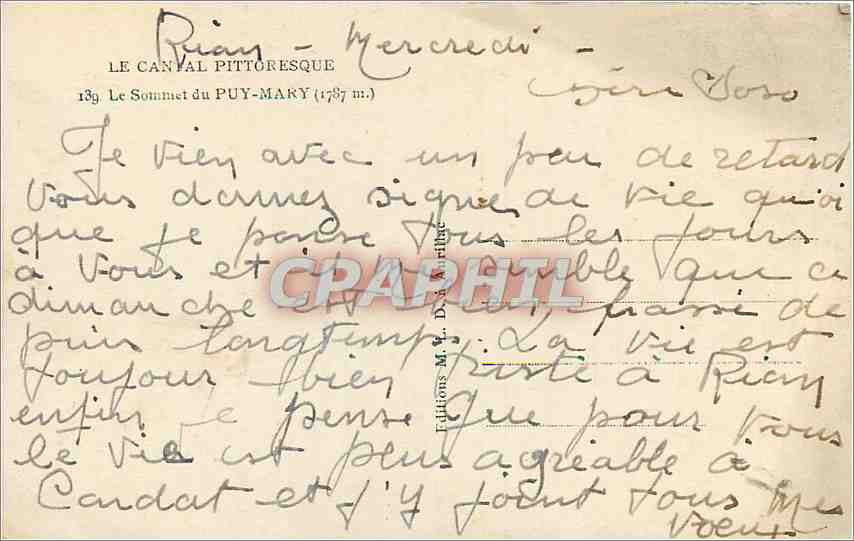 Riam - Mercredi -
LE CANTAL PITTORESQUE
139 Le Sommet du PUY-MARY (1787 m.)
Je vien avec un peu de retard
vous donnez signe de vie quoi
que je panse tous les jours
à vous et il me semble que ce
dimanche est bien passé de
puis longtemps. La vie est
toujour bien triste à Riam
enfin je pense que pour vous
le vie est plus agréable à
Candat et j'y joint tous mes
voeux
Editions M. L. D. à Aurillac
CPAPHIL